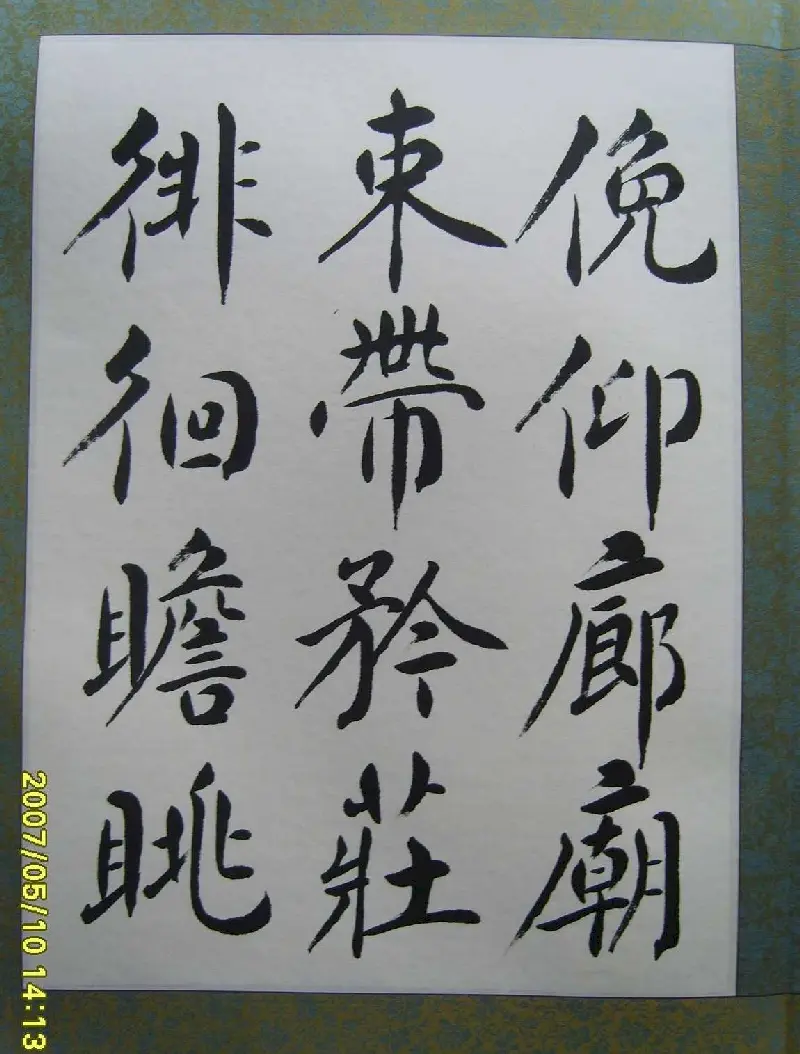 俛仰廊廟
束帶矜莊
徘徊瞻眺
2007/05/10 14:13